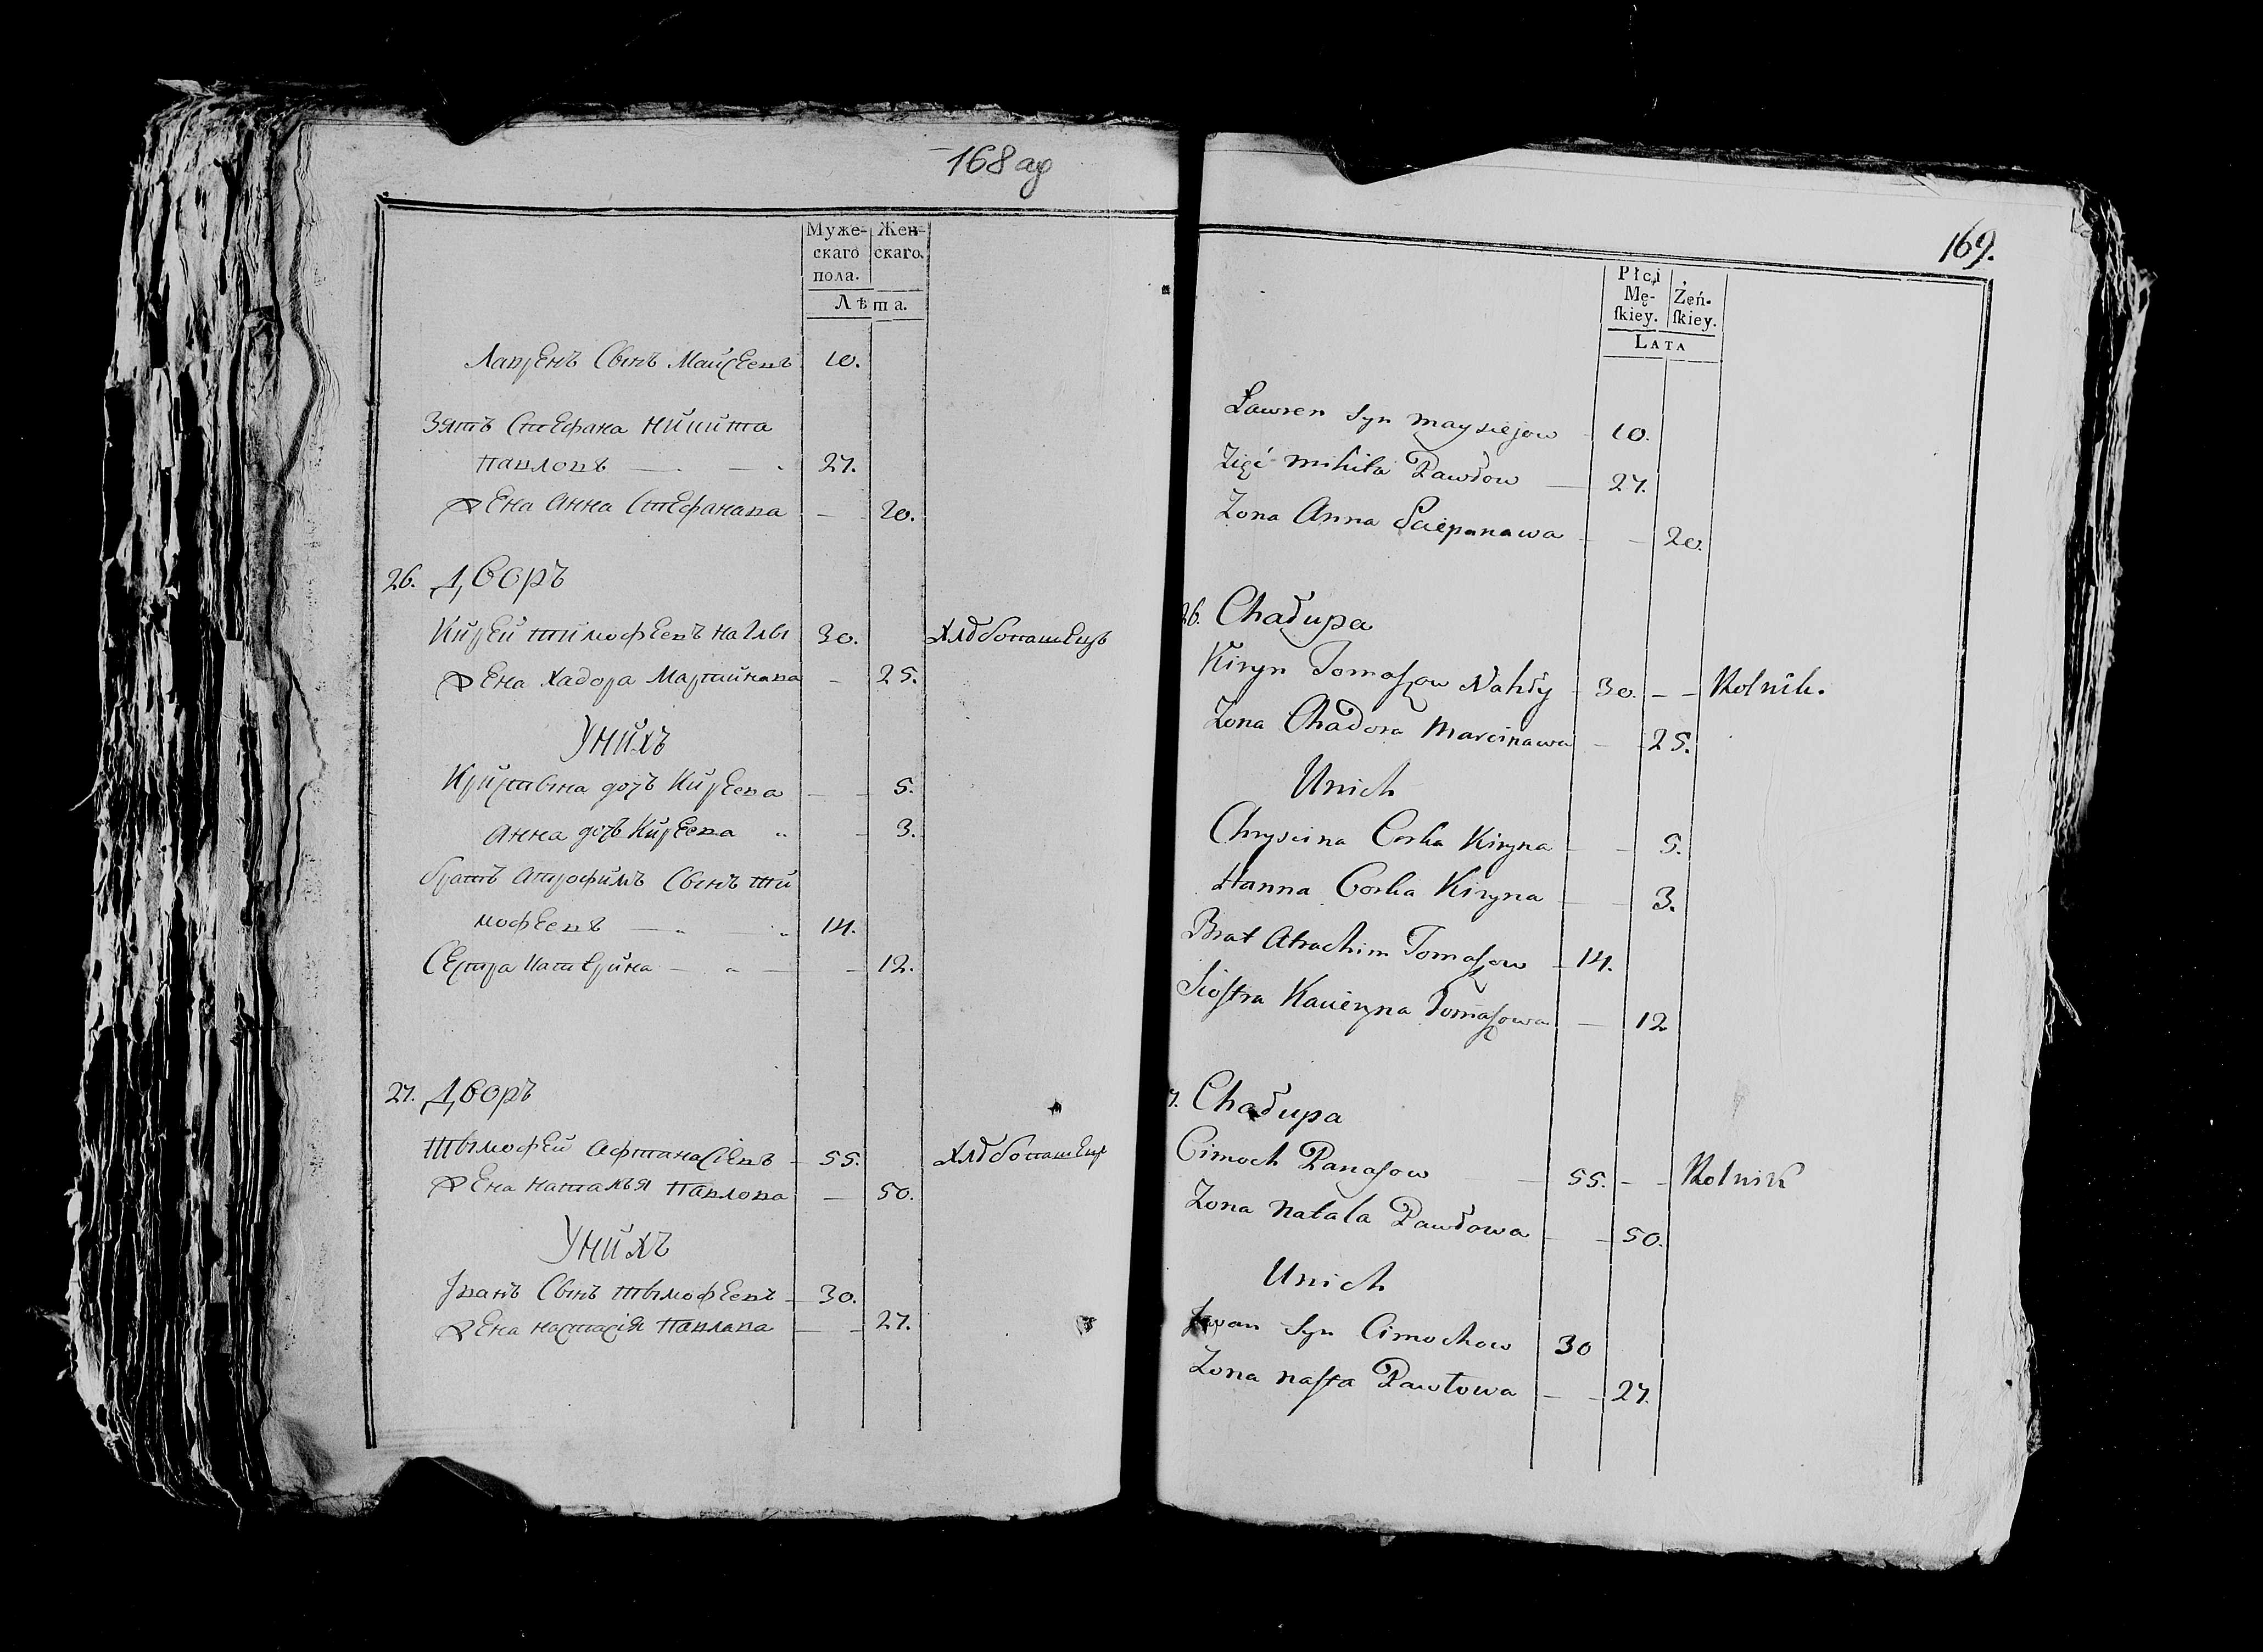 168 ад
Муже- Жен-
скаго скаго.
пола.
Лѣта.
Лавренъ Сынъ Майсеевъ 10.
Зять Стефана Никита
Павловъ — . — . 27.
Жена Анна Стефанава — 20.
26. Дворъ
Кирей Тимофеевъ 30. Хлѣбопашецъ
Жена Хадора Мартинава — 25.
У нихъ
Кристына дочь Киреева — — 5.
Анна дочь Киреева — 3.
братъ Атрофимъ Сынъ Ти
мофеевъ — 14.
Сестра Катерина — „ — — 12.
27. Дворъ
Тымофей Афтанасіевъ — 55. Хлѣбопашец
Жена Наталья Павлова — 50.
У нихъ
Іванъ Сынъ Тымофеевъ — 30.
Жена Настасія Павлава — — 27.
169.
Płci
Mę- Żeń-
ſkiey. ſkiey.
LATA
Lawren Syn Maysiejow 10.
Zięć Mikita Pawłow — 27.
Zona Anna Sciepanawa — — 20.
26. Chałupa
Kiryn Tomaſzow Nahły — 30. — — Rolnik.
Zona Chadora Marcinawa — 25.
Unich
Chryscina Corka Kiryna — — 5.
Hanna Corka Kiryna — — 3.
Brat Atrachim Tomaſzow — 14.
Sioſtra Kacieryna Tomaſzowa — 12
7. Chałupa
Cimoch Panaſow — 55. — — Rolnik
Zona Natala Pawłowa — — 50.
Unich
Jwan Syn Cimochow 30
Zona Naſta Pawłowa — — 27.